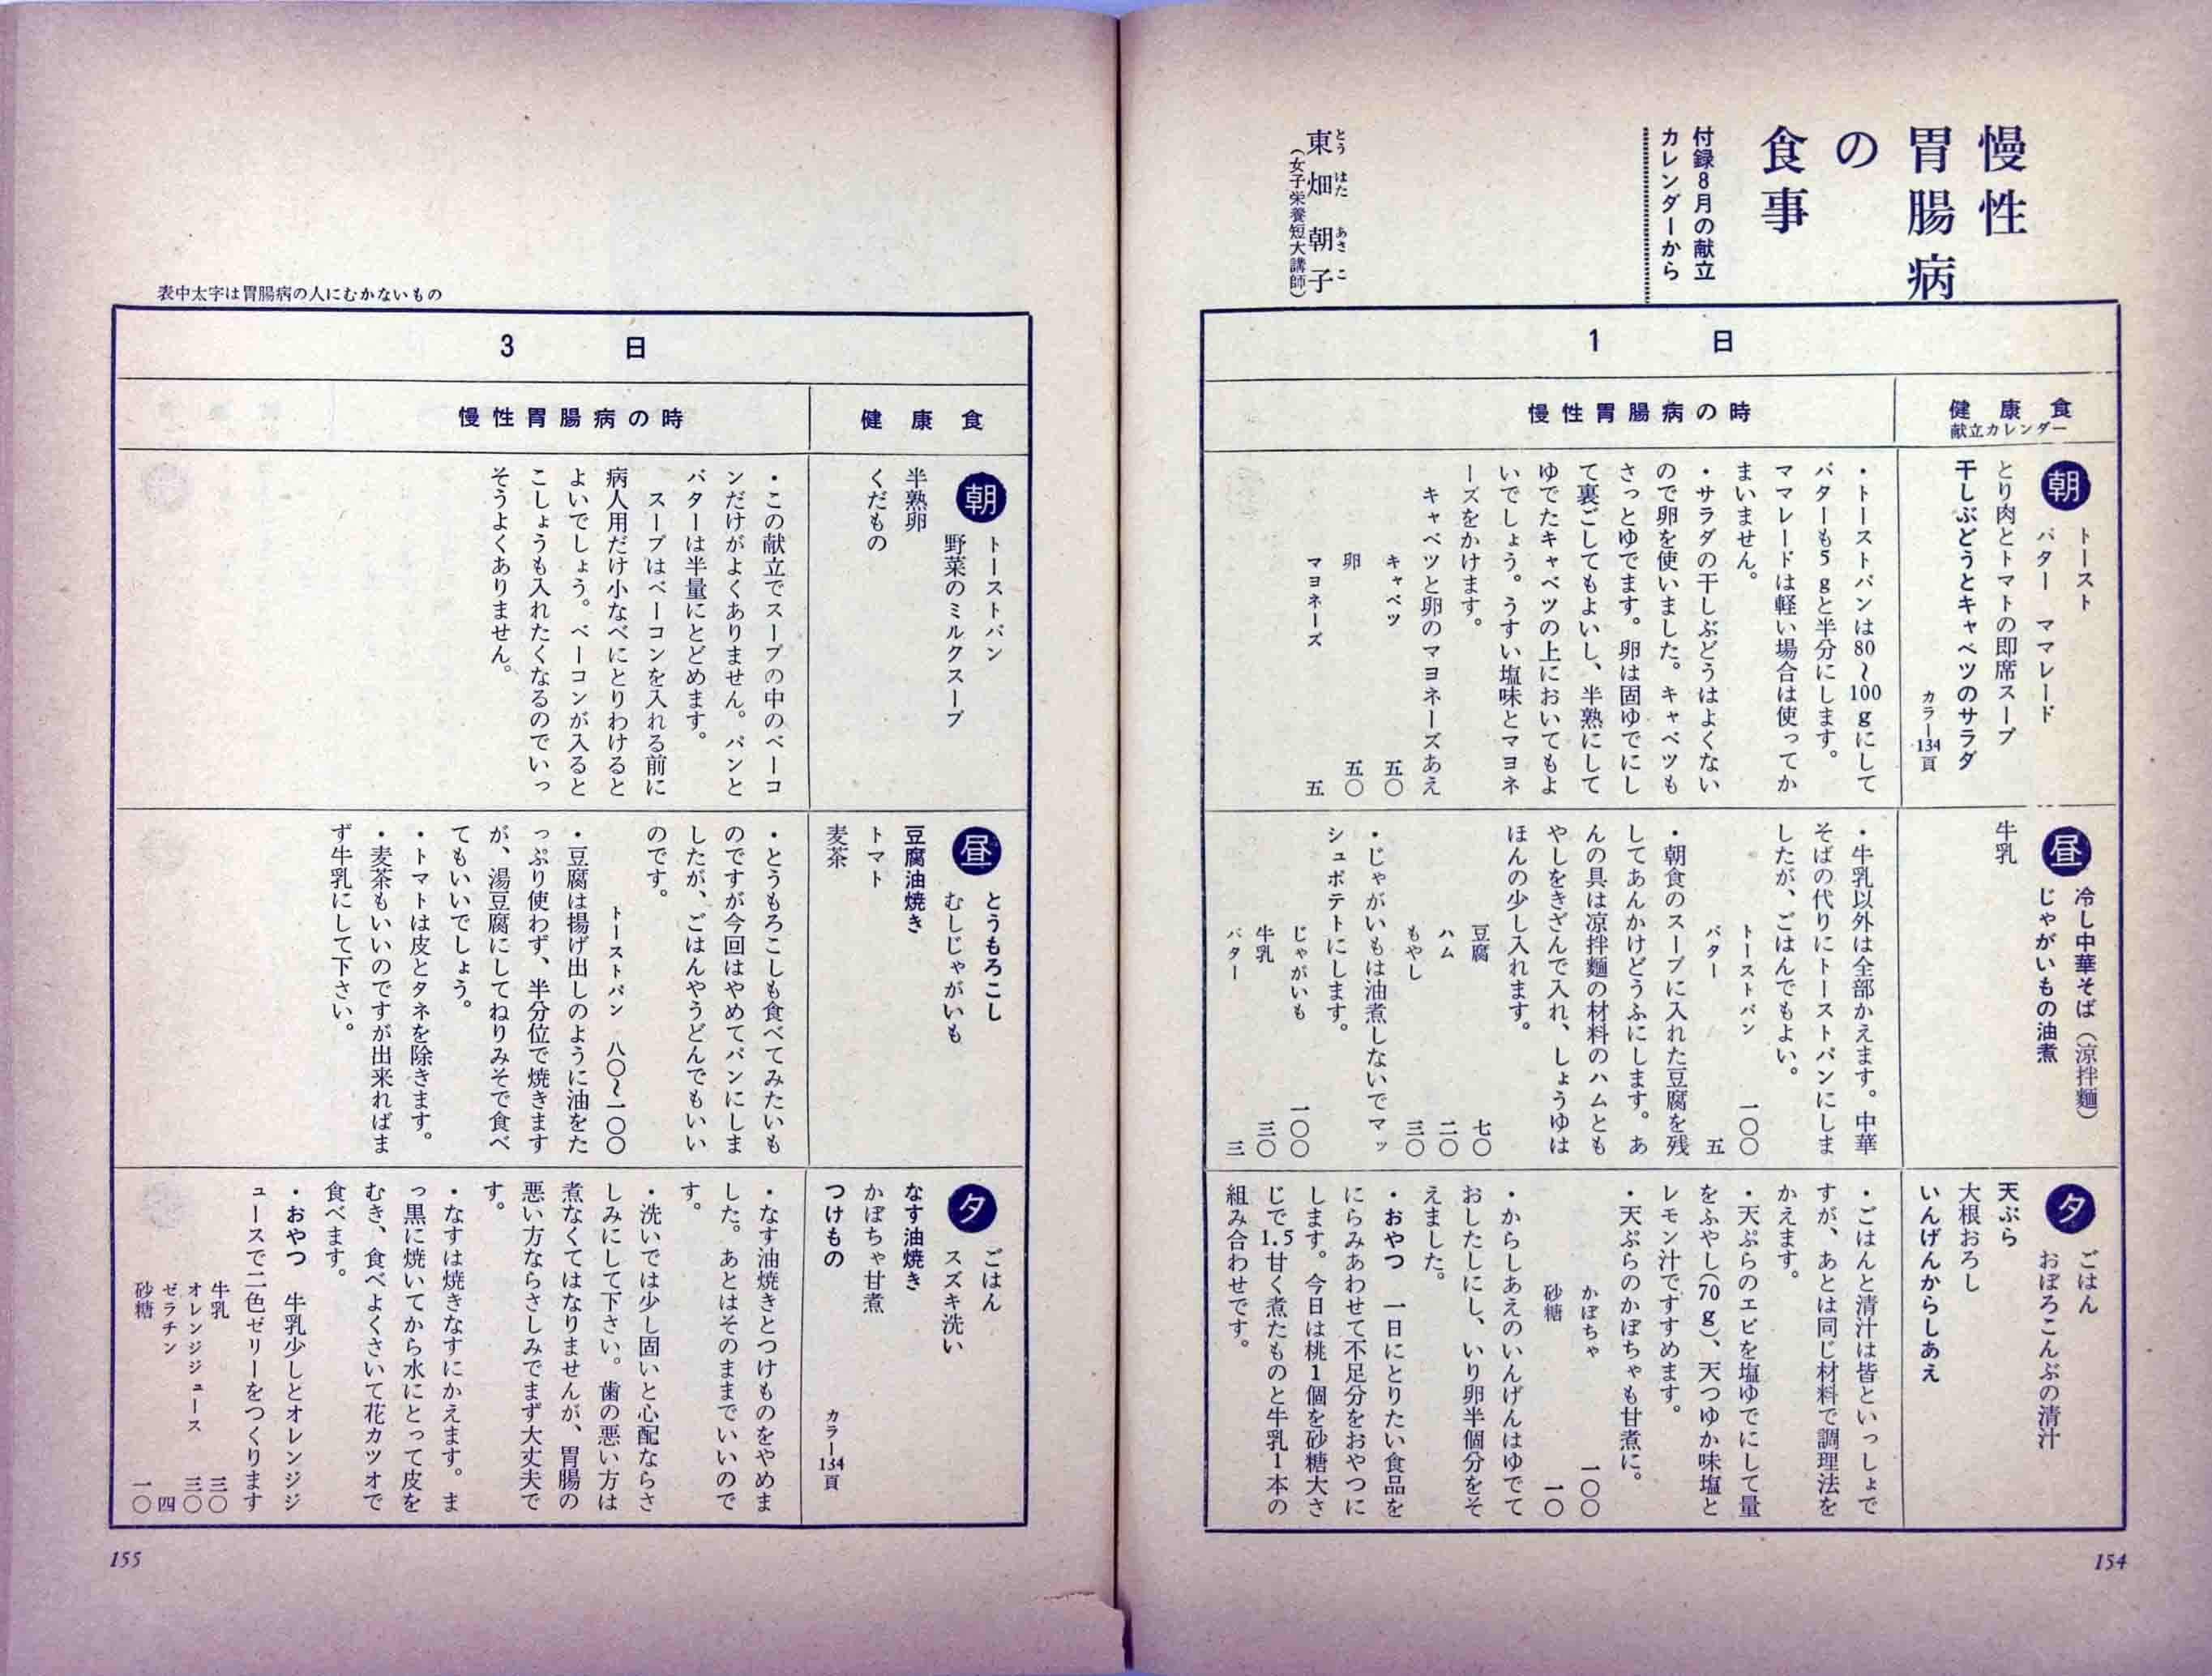 慢性
胃腸病
の
食事
付録8月の献立
カレンダーから
東畑朝子
とうはたあさこ
(女子栄養短大講師)
1日
健康食
献立カレンダー
慢性胃腸病の時
朝
トースト
バター ママレード
とり肉とトマトの即席スープ
干しぶどうとキャベツのサラダ
カラー134頁
・トーストパンは80〜100gにして
バターも5gと半分にします。
ママレードは軽い場合は使ってか
まいません。
・サラダの干しぶどうはよくない
ので卵を使いました。キャベツも
さっとゆでます。卵は固ゆでにし
て裏ごしてもよいし、半熟にして
ゆでたキャベツの上においてもよ
いでしょう。うすい塩味とマヨネ
ーズをかけます。
キャベツと卵のマヨネーズあえ
キャベツ 五〇
卵 五〇
マヨネーズ 五
昼
冷し中華そば(涼拌麺)
じゃがいもの油煮
牛乳
・牛乳以外は全部かえます。中華
そばの代りにトーストパンにしま
したが、ごはんでもよい。
トーストパン 一〇〇
バター 五
・朝食のスープに入れた豆腐を残
してあんかけどうふにします。あ
んの具は涼拌麺の材料のハムとも
やしをきざんで入れ、しょうゆは
ほんの少し入れます。
豆腐 七〇
ハム 二〇
もやし 三〇
・じゃがいもは油煮しないでマッ
シュポテトにします。
じゃがいも 一〇〇
牛乳 三〇
バター 三
夕
ごはん
おぼろこんぶの清汁
天ぷら
大根おろし
いんげんからしあえ
・ごはんと清汁は皆といっしょで
すが、あとは同じ材料で調理法を
かえます。
・天ぷらのエビを塩ゆでにして量
をふやし(70g)、天つゆか味塩と
レモン汁ですすめます。
・天ぷらのかぼちゃも甘煮に。
かぼちゃ 一〇〇
砂糖 一〇
・からしあえのいんげんはゆでて
おしたしにし、いり卵半個分をそ
えました。
・おやつ 一日にとりたい食品を
にらみあわせて不足分をおやつに
します。今日は桃1個を砂糖大さ
じで1.5甘く煮たものと牛乳1本の
組み合わせです。
154
表中太字は胃腸病の人にむかないもの
3日
健康食
慢性胃腸病の時
朝
トーストパン
野菜のミルクスープ
半熟卵
くだもの
・この献立でスープの中のベーコ
ンだけがよくありません。パンと
バターは半量にとどめます。
スープはベーコンを入れる前に
病人用だけ小なべにとりわけると
よいでしょう。ベーコンが入ると
こしょうも入れたくなるのでいっ
そうよくありません。
昼
とうもろこし
むしじゃがいも
豆腐油焼き
トマト
麦茶
・とうもろこしも食べてみたいも
のですが今回はやめてパンにしま
したが、ごはんやうどんでもいい
のです。
トーストパン 八〇〜一〇〇
・豆腐は揚げ出しのように油をた
っぷり使わず、半分位で焼きます
が、湯豆腐にしてねりみそで食べ
てもいいでしょう。
・トマトは皮とタネを除きます。
・麦茶もいいのですが出来ればま
ず牛乳にして下さい。
夕
ごはん
スズキ洗い
なす油焼き
かぼちゃ甘煮
つけもの
カラー134頁
・なす油焼きとつけものをやめま
した。あとはそのままでいいので
す。
・洗いでは少し固いと心配ならさ
しみにして下さい。歯の悪い方は
煮なくてはなりませんが、胃腸の
悪い方ならさしみでまず大丈夫で
す。
・なすは焼きなすにかえます。ま
っ黒に焼いてから水にとって皮を
むき、食べよくさいて花カツオで
食べます。
・おやつ 牛乳少しとオレンジジ
ュースで二色ゼリーをつくります
牛乳 三〇
オレンジジュース 三〇
ゼラチン 四
砂糖 一〇
155